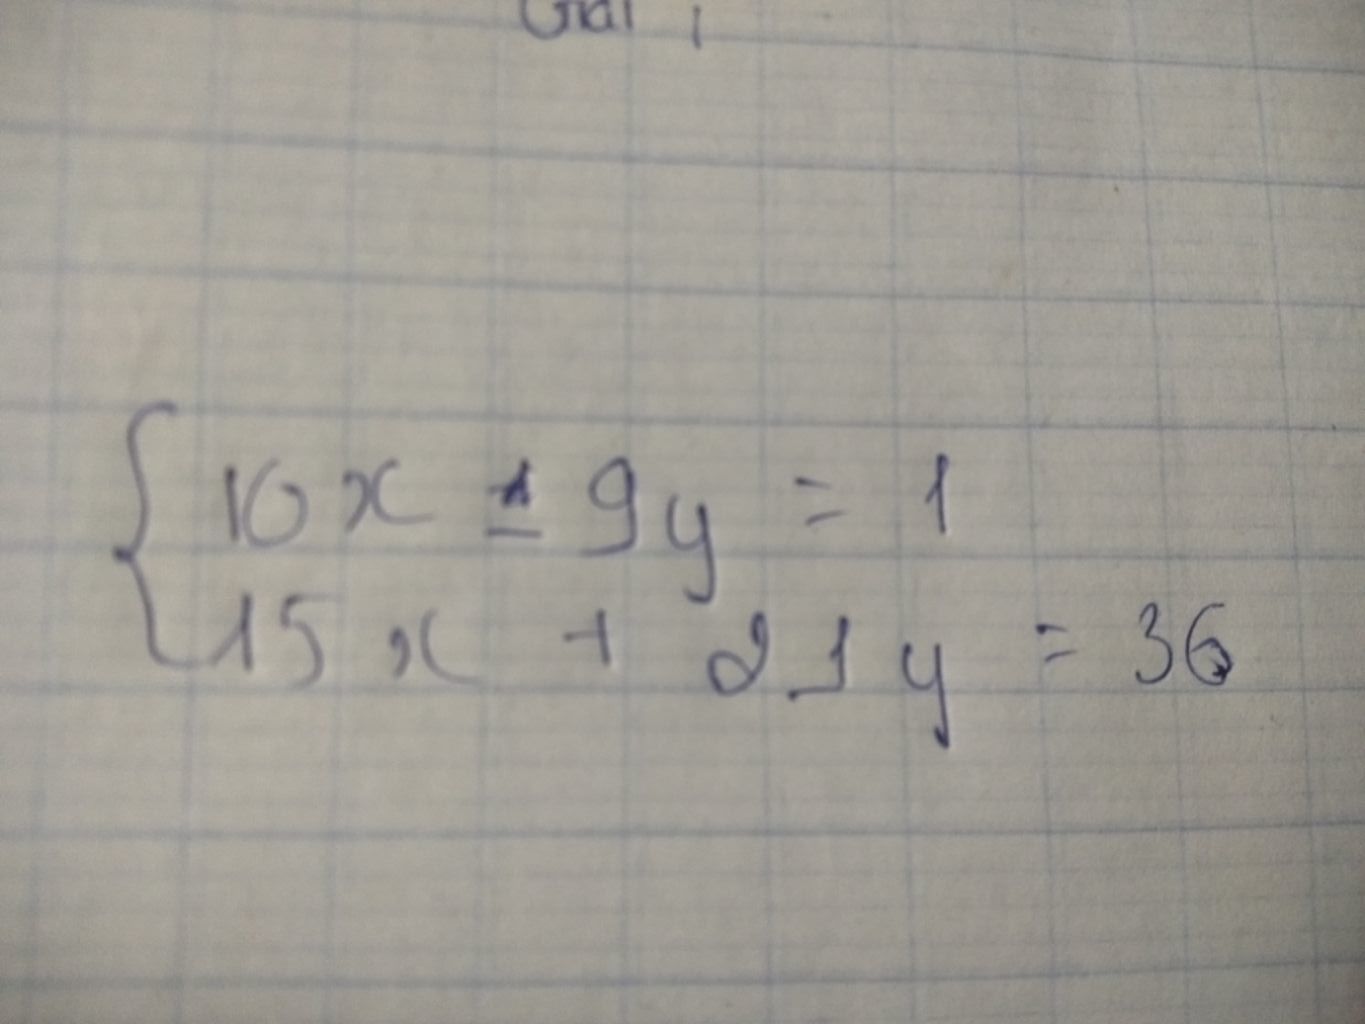 Giải :
{ 10x - 9y = 1
15x + 21y = 36